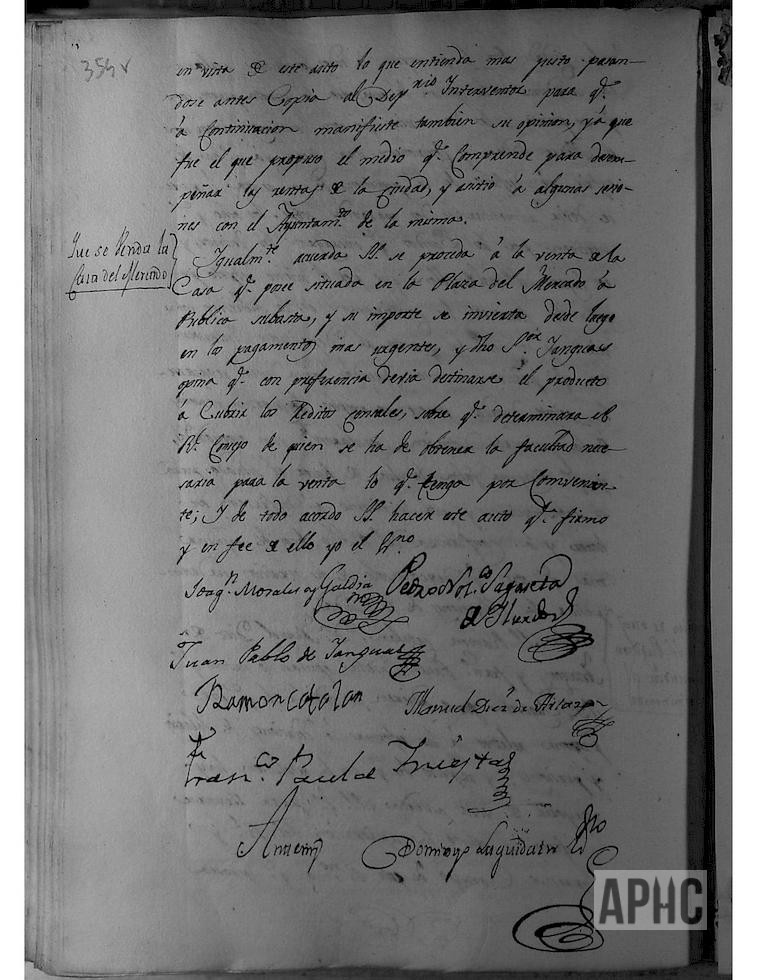 354 v
en vista de este auto lo que entienda mas justo pasan-
dose antes Copia al Dep.rio Interventor para q.e
â Continuacion manifieste tambien su opinion, yâ que
fue el que propuso el medio q.e Comprende para desem-
peñar las rentas de la Ciudad, y asistio â algunas sesio-
nes con el Ayuntam.to de la misma.
Que se Venda la
Casa del Mercado
Igualm.te acuerda SS. se proceda â la venta de la
Casa q.e posee situada en la Plaza del Mercado â
Publica subasta, y su importe se invierta desde luego
en los pagamentos mas urgentes, y dho S.or Yanguas
opina q.e con preferencia deria destinarse el producto
â Cubrir los Reditos censales, sobre q.e determinara el
R.l Consejo de quien se ha de obtener la facultad nece-
saria para la venta lo q.e tenga por Convenien-
te; Y de todo acordo SS. hacer este auto q.e firmo
y en fee de ello yo el Ss.no
Joaq.n Morales y Guldia Pedro Sagaseta
de Ylurdoz
Juan Pablo de Yanguas
Ramon Catalan Manuel Diez de
Fran.co Paula Yñiesta
Antemi Domingo
APHC